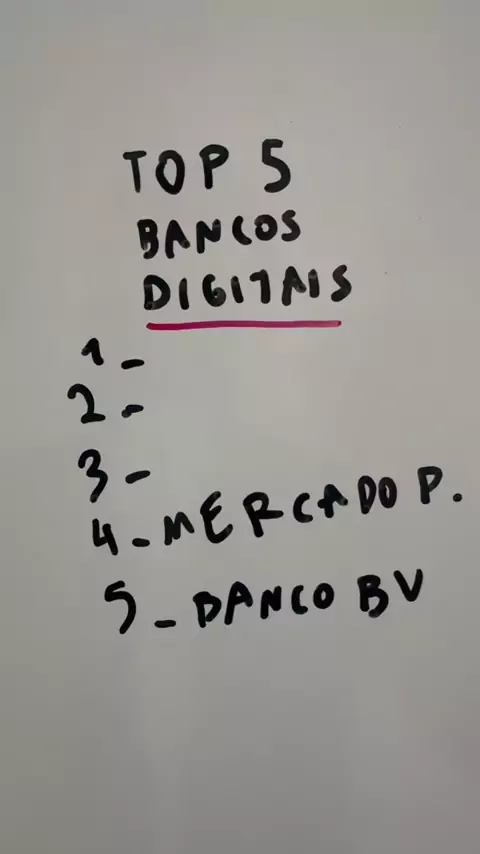 TOP 5
BANCOS
DIGITAIS
1-
2-
3-
4-MERCADO P.
5-BANCO BV